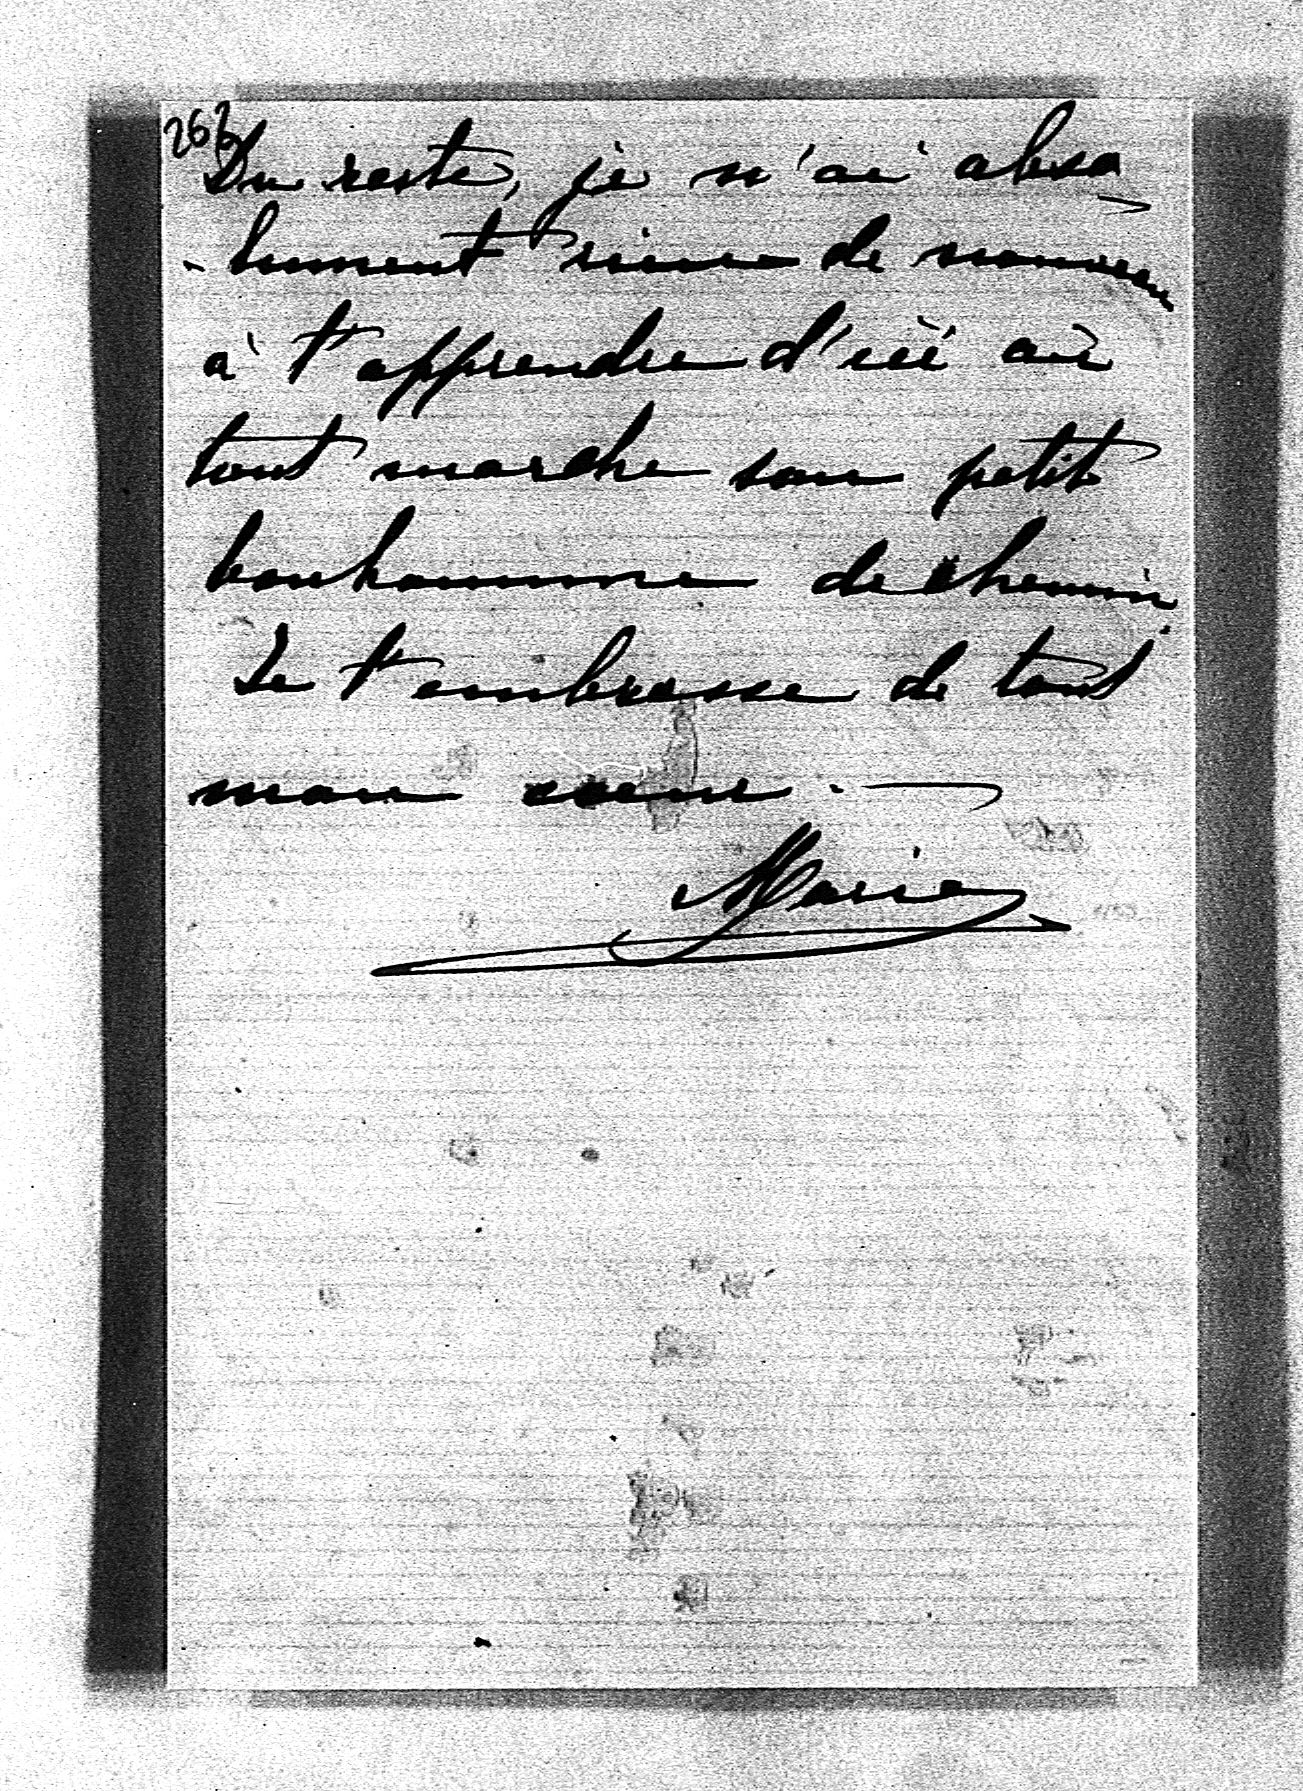 263
Du reste, je n'ai abso
-lument rien de nouveau
à t'apprendre d'ici où
tout marche son petit
bonhomme de chemin.
Je t'embrasse de tout
mon coeur. —
Marie